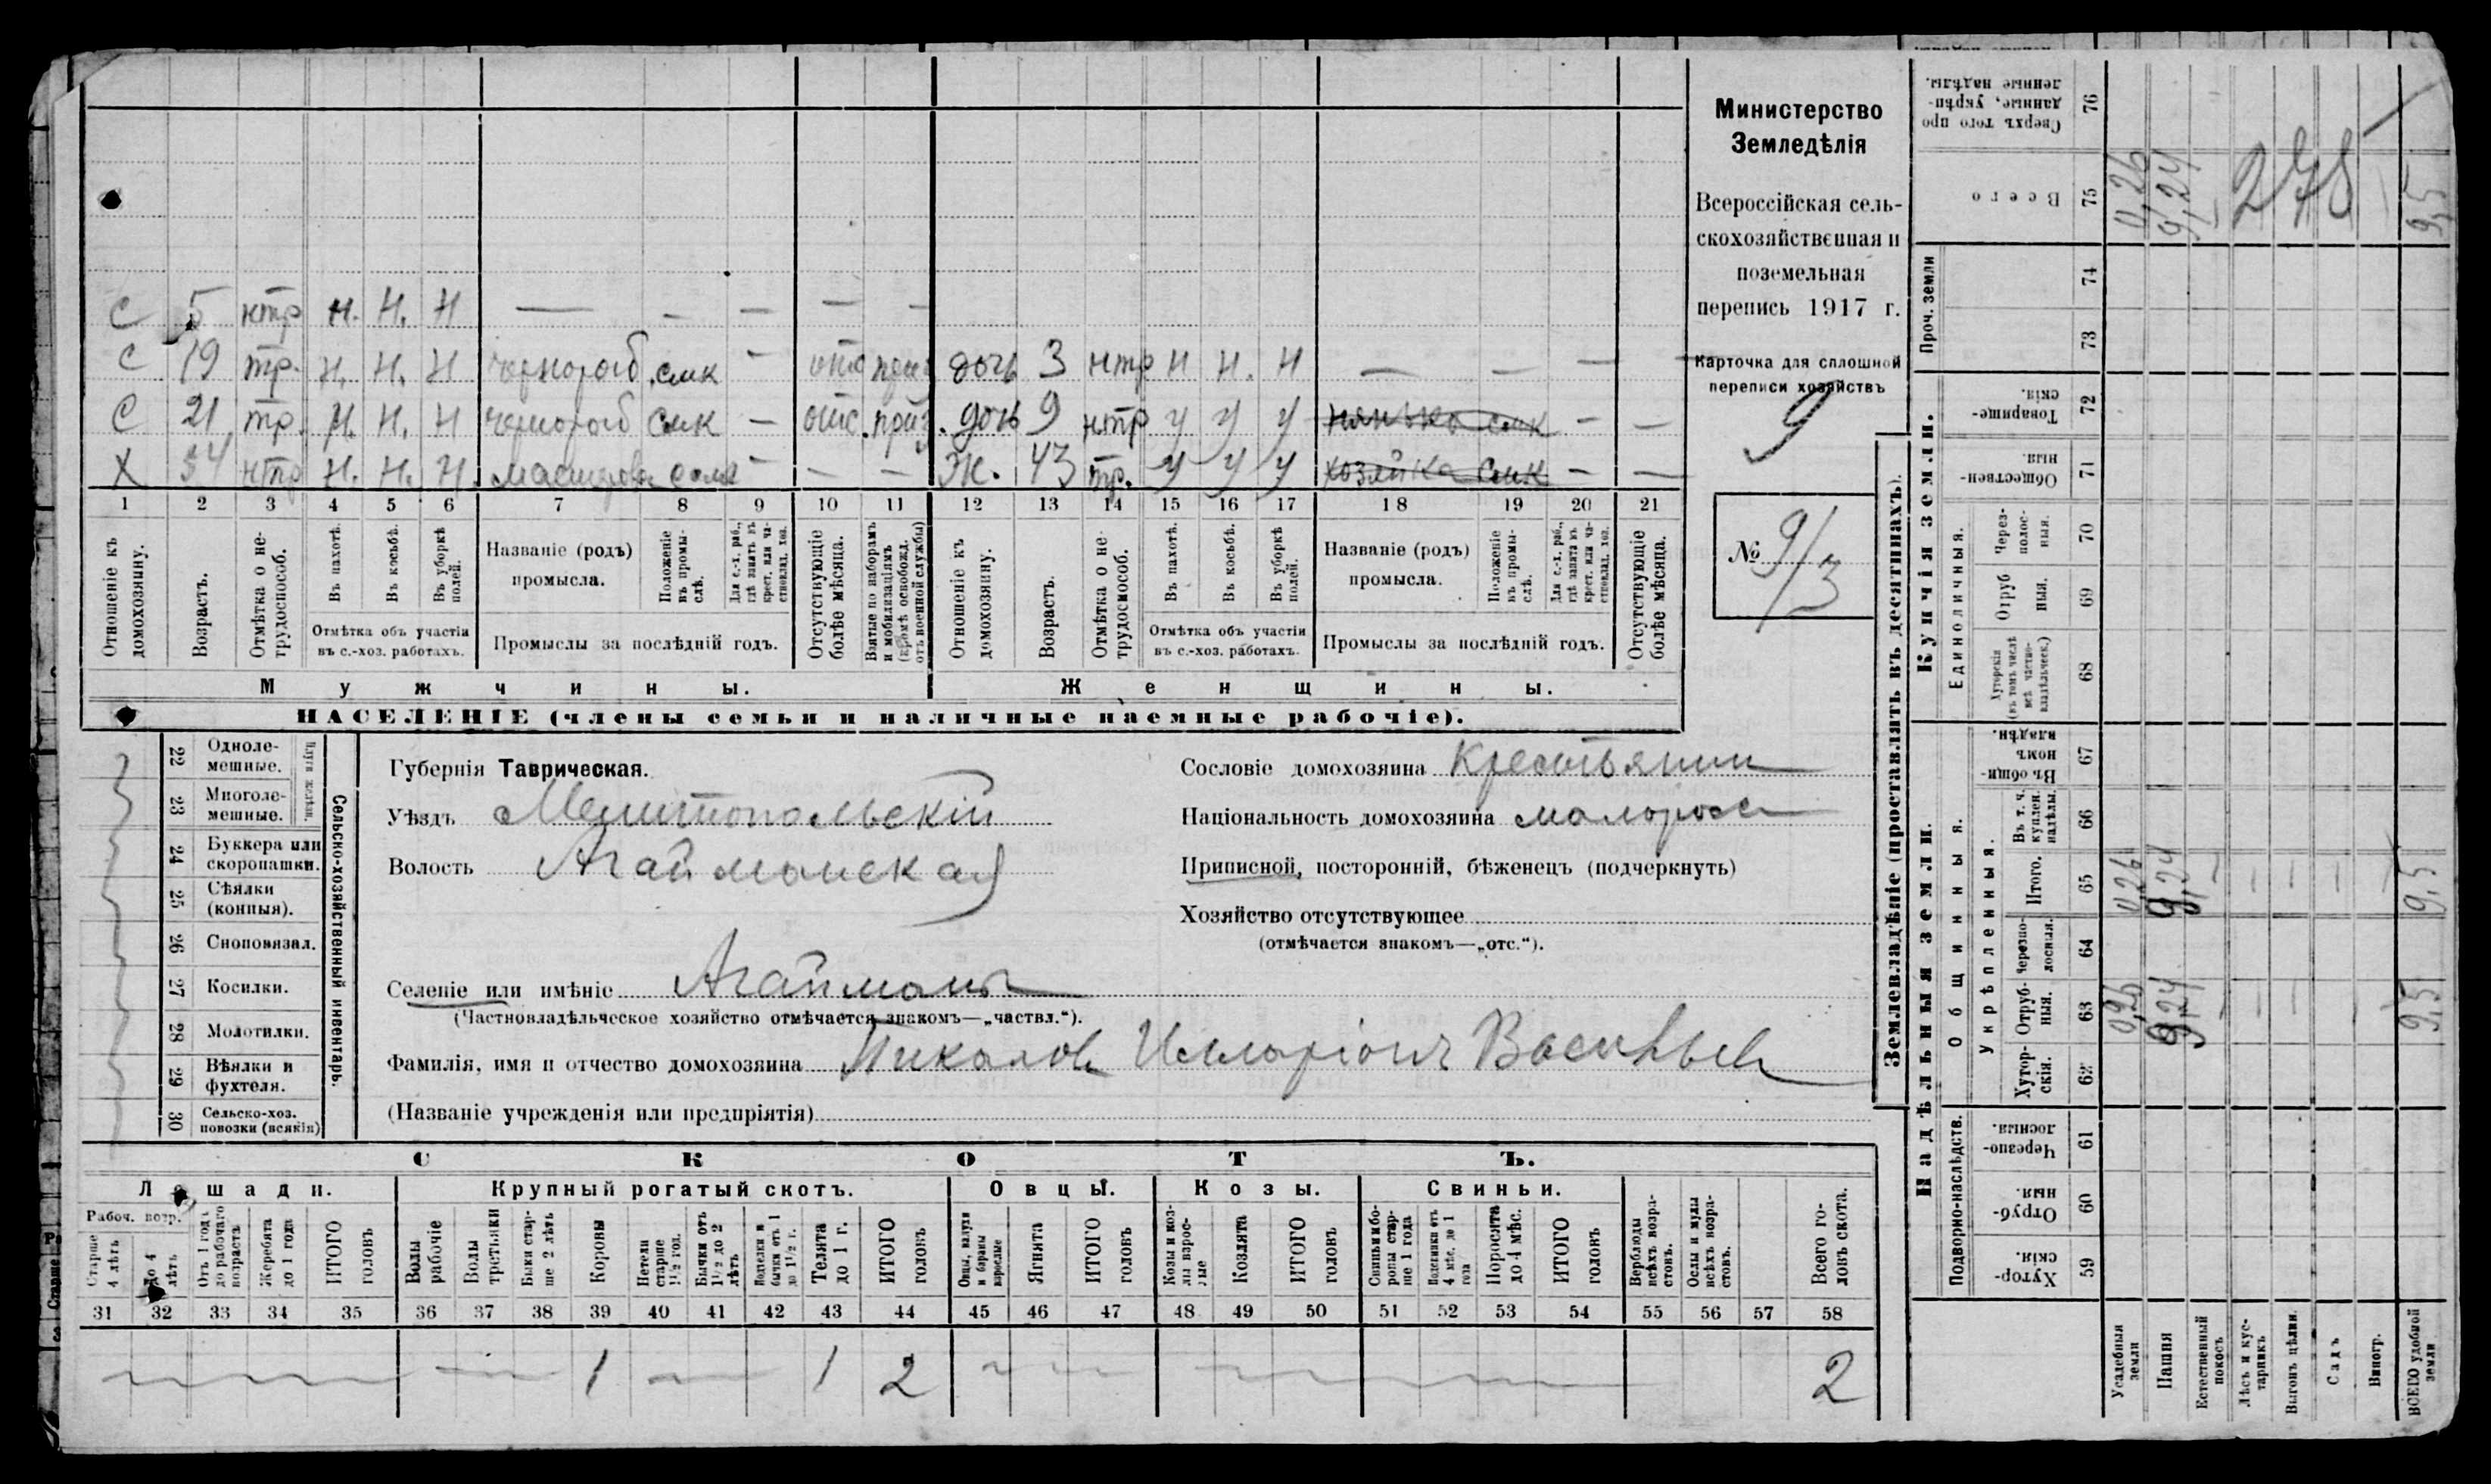 Министерство
Земледѣлія
Всероссійская сель-
скохозяйственная и
поземельная
перепись 1917 г.
Карточка для сплошной
переписи хозяйствъ
9
№ 9/3
С 5 нтр Н. Н. Н — — — — —
С 19 тр. Н. Н. Н чернораб. смк — отс дочь 3 нтр Н Н. Н — — —
С 21 тр. Н. Н. Н чернораб смк — отс. приз. дочь 9 нтр У У У нянька смк — —
Х 54 нтр Н. Н. Н. — — — Ж. 43 тр. У У У хозяйка смк — —
1 2 3 4 5 6 7 8 9 10 11 12 13 14 15 16 17 18 19 20 21
Отношеніе къ домохозяину.
Возрастъ.
Отмѣтка о не-трудоспособ.
Въ пахотѣ.
Въ косьбѣ.
Въ уборкѣ полей.
Отмѣтка объ участіи въ с.-хоз. работахъ.
Названіе (родъ) промысла.
Положеніе въ промы-слѣ.
Для с.-х. раб., гдѣ занятъ въ крест. или ча-стновлад. хоз.
Промыслы за послѣдній годъ.
Отсутствующіе болѣе мѣсяца.
Взятые по наборамъ и мобилизаціямъ (кромѣ освобожд. отъ военной службы)
Отношеніе къ домохозяину.
Возрастъ.
Отмѣтка о не-трудоспособ.
Въ пахотѣ.
Въ косьбѣ.
Въ уборкѣ полей.
Отмѣтка объ участіи въ с.-хоз. работахъ.
Названіе (родъ) промысла.
Положеніе въ промы-слѣ.
Для с.-х. раб., гдѣ занята въ крест. или ча-стновлад. хоз.
Промыслы за послѣдній годъ.
Отсутствующіе болѣе мѣсяца.
Мужчины. Женщины.
НАСЕЛЕНІЕ (члены семьи и наличные наемные рабочіе).
Сельско-хозяйственный инвентарь.
22 Одноле-мешные.
23 Многоле-мешные.
24 Буккера или скоропашки.
25 Сѣялки (конныя).
26 Сноповязал.
27 Косилки.
28 Молотилки.
29 Вѣялки и фухтеля.
30 Сельско-хоз. повозки (всякія)
Губернія Таврическая.
Уѣздъ Мелитопольскій
Волость Агайманская
Селеніе или имѣніе Агайманъ
(Частновладѣльческое хозяйство отмѣчается знакомъ—„частвл.“).
Фамилія, имя и отчество домохозяина Пикаловъ Илларіонъ Васильев
(Названіе учрежденія или предпріятія)
Сословіе домохозяина Крестьянин
Національность домохозяина малоросс
Приписной, посторонній, бѣженецъ (подчеркнуть)
Хозяйство отсутствующее
(отмѣчается знакомъ—„отс.“).
СКОТЪ.
Лошади. Крупный рогатый скотъ. Овцы. Козы. Свиньи.
Рабоч. возр.
Старше 4 лѣтъ
до 4 лѣтъ
Отъ 1 года до рабочаго возраста
Жеребята до 1 года
ИТОГО головъ
Волы рабочіе
Волы третьяки
Быки стар-ше 2 лѣтъ
Коровы
Нетели старше 1½ год.
Бычки отъ 1½ до 2 лѣтъ
Водезки и бычки отъ 1 до 1½ г.
Телята до 1 г.
ИТОГО головъ
Овцы, валухи и бараны взрослые
Ягнята
ИТОГО головъ
Козы и коз-лы взрос-лые
Козлята
ИТОГО головъ
Свиньи и бо-ровы стар-ше 1 года
Подсвинки отъ 4 мѣс. до 1 года
Поросята до 4 мѣс.
ИТОГО головъ
Верблюды всѣхъ возра-стовъ.
Ослы и мулы всѣхъ возра-стовъ.
Всего го-ловъ скота.
31 32 33 34 35 36 37 38 39 40 41 42 43 44 45 46 47 48 49 50 51 52 53 54 55 56 57 58
1 1 2 2
Землевладѣніе (проставлять въ десятинахъ).
Надѣльныя земли.
Купчія земли.
Проч. земли
Подворно-наслѣдств.
Общинныя.
Укрѣпленныя.
Единоличныя.
59 Хутор-скія.
60 Отруб-ныя.
61 Черезпо-лосныя.
62 Хутор-скія.
63 Отруб-ныя.
64 Черезпо-лосныя.
65 Итого.
66 Въ т. ч. куплен. надѣлы.
67 Въ общи-номъ владѣн.
68 Хуторскія (въ томъ числѣ всѣ частно-владѣльческ.)
69 Отруб ныя.
70 Через-полос-ныя.
71 Обществен-ныя.
72 Товарище-скія.
73
74
75 Всего
76 Сверхъ того про данные, укрѣп-ленные надѣлы.
Усадебныя земли 0,26 0,26 0,26
Пашня 9,24 9,24 9,24
Естественный покосъ
Лѣсъ и кус-тарникъ
Выгонъ цѣлин.
Садъ
Виногр.
ВСЕГО удобной земли 9,5 9,5 9,5
278